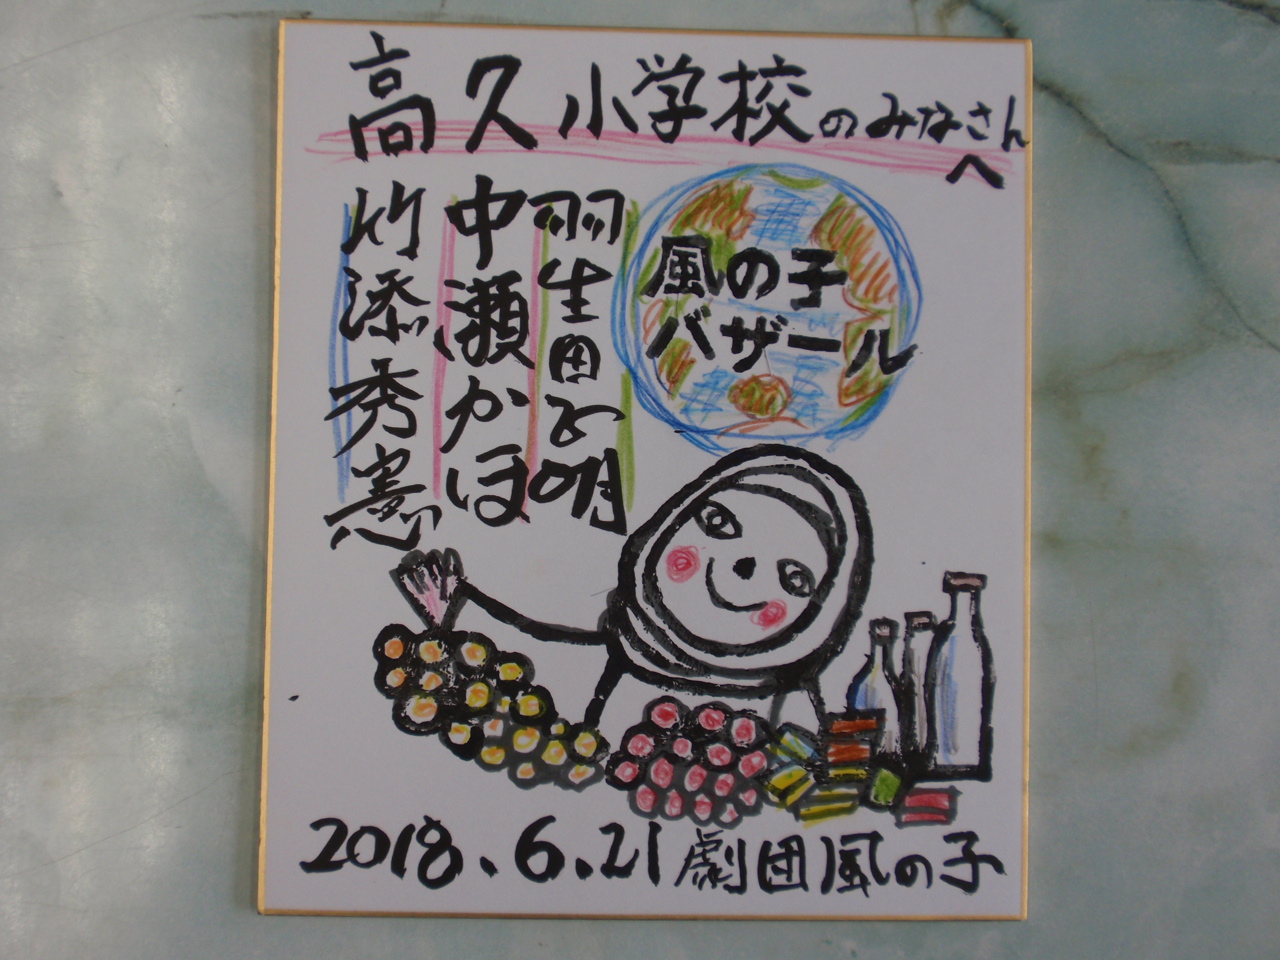 高久小学校のみなさん
へ
風の子
バザール
羽生田正明
中瀬かほ
竹添秀憲
2018.6.21 劇団風の子